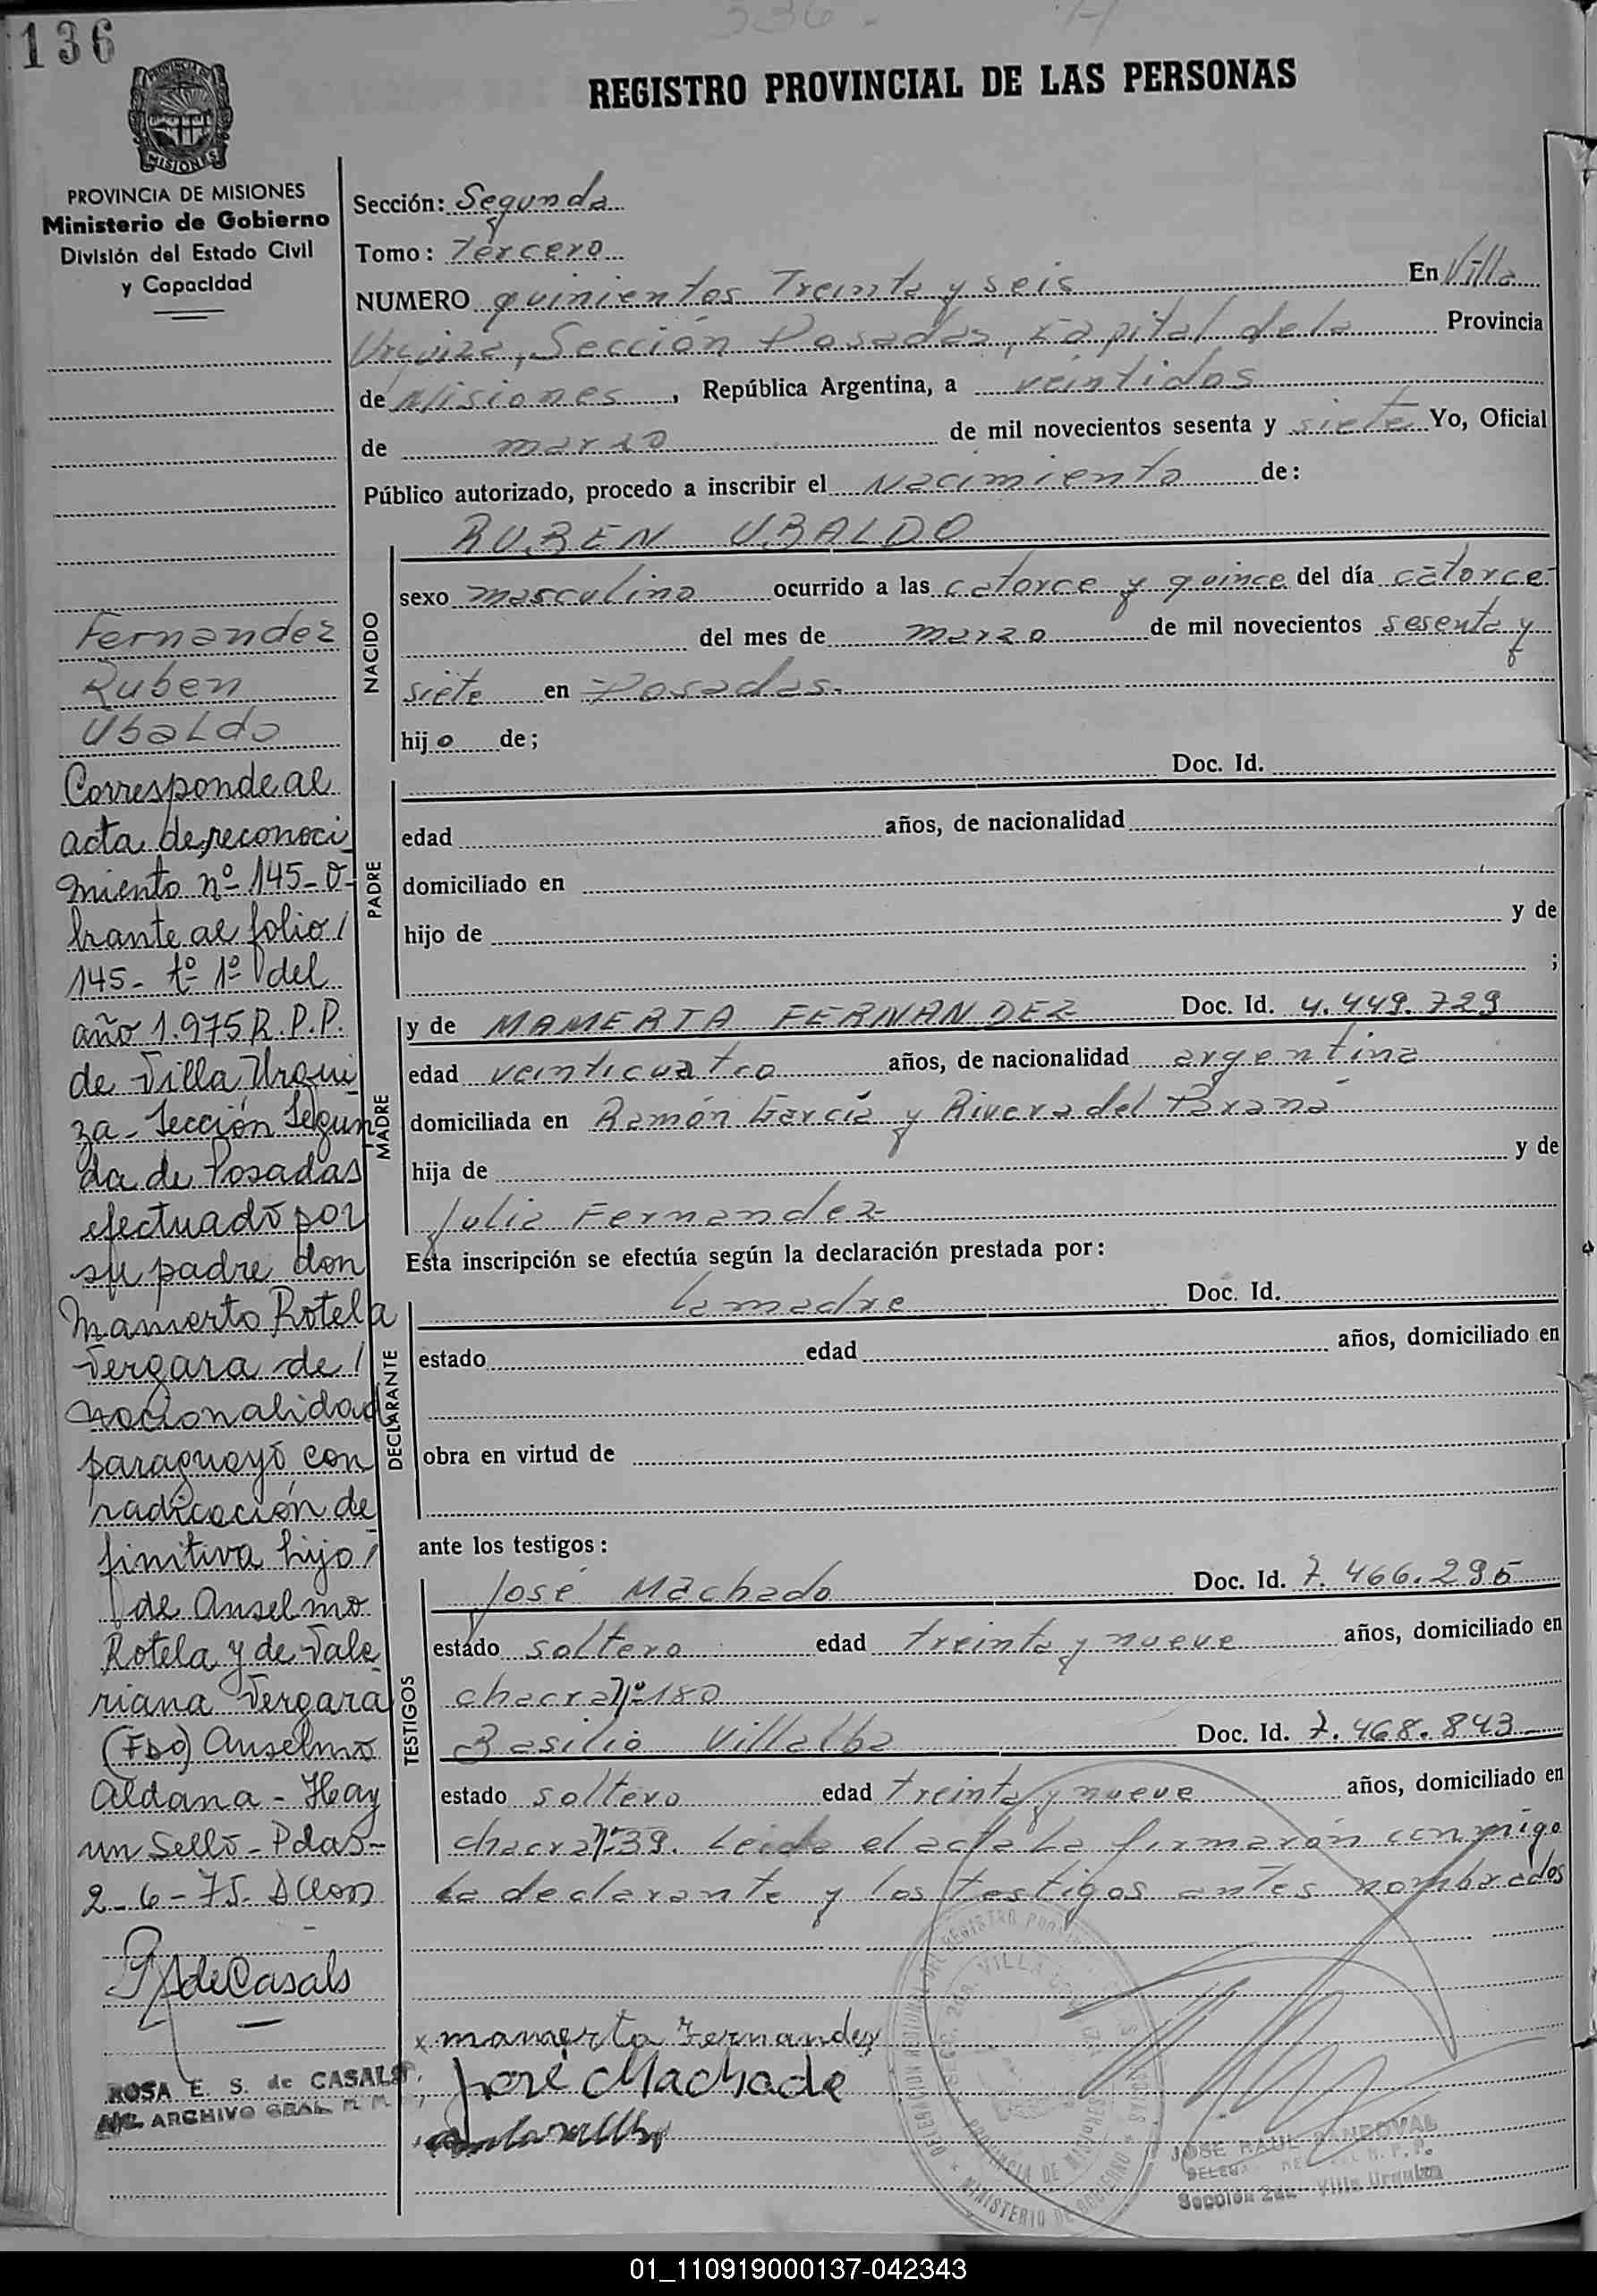 136
REGISTRO PROVINCIAL DE LAS PERSONAS
MISIONES
PROVINCIA DE MISIONES
Ministerio de Gobierno
División del Estado Civil
y Capacidad
Fernandez
Ruben
Ubaldo
Corresponde al
acta de reconoci
miento nº 145 - O-
brante al folio /
145 - tº 1º del
año 1.975 R. P. P.
de Villa Urqui
za - Sección Segun
da de Posadas
efectuado por
su padre don
Mamerto Rotela
Vergara de /
nacionalidad
paraguayo con
radicación de
finitiva hijo /
de Anselmo
Rotela y de Vale
riana Vergara
(Fdo) Anselmo
Aldana - Hay
un Sello - Pdas -
2 - 6 - 75.
deCasals
ROSA E. S. de CASALS
ARCHIVO GRAL
Sección: Segunda
Tomo: Tercero
NUMERO quinientos Treinta y seis En Villa
Urquiza, Sección Posadas, Capital de la Provincia
de Misiones, República Argentina, a veintidos
de marzo de mil novecientos sesenta y siete Yo, Oficial
Público autorizado, procedo a inscribir el Nacimiento de:
RUBEN UBALDO
NACIDO
sexo masculino ocurrido a las catorce y quince del día catorce
del mes de marzo de mil novecientos sesenta y
siete en Posadas.
hijo de;
Doc. Id.
PADRE
edad años, de nacionalidad
domiciliado en
hijo de y de
;
MADRE
y de MAMERTA FERNANDEZ Doc. Id. 4.449.729
edad veinticuatro años, de nacionalidad argentina
domiciliada en Ramón García y Rivera del Paraná
hija de y de
Julia Fernandez
Esta inscripción se efectúa según la declaración prestada por:
DECLARANTE
La madre Doc. Id.
estado edad años, domiciliado en
obra en virtud de
ante los testigos:
TESTIGOS
José Machado Doc. Id. 7.466.295
estado soltero edad treinta y nueve años, domiciliado en
chacra nº 180
Basilio Villalba Doc. Id. 7.468.843
estado soltero edad treinta y nueve años, domiciliado en
chacra nº 39. Leida el acta la firmarón conmigo
La declarante y los testigos antes nombrados
x mamerta Fernandez
José Machado
JOSE RAUL SANDOVAL
Sección 2da - Villa Urquiza
PROVINCIA DE MISIONES
MINISTERIO DE GOBIERNO
01_110919000137-042343